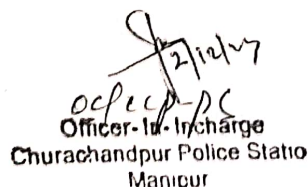 2/12/27
OC/CCP-PS
Officer-In-Incharge
Churachandpur Police Statio
Manipur